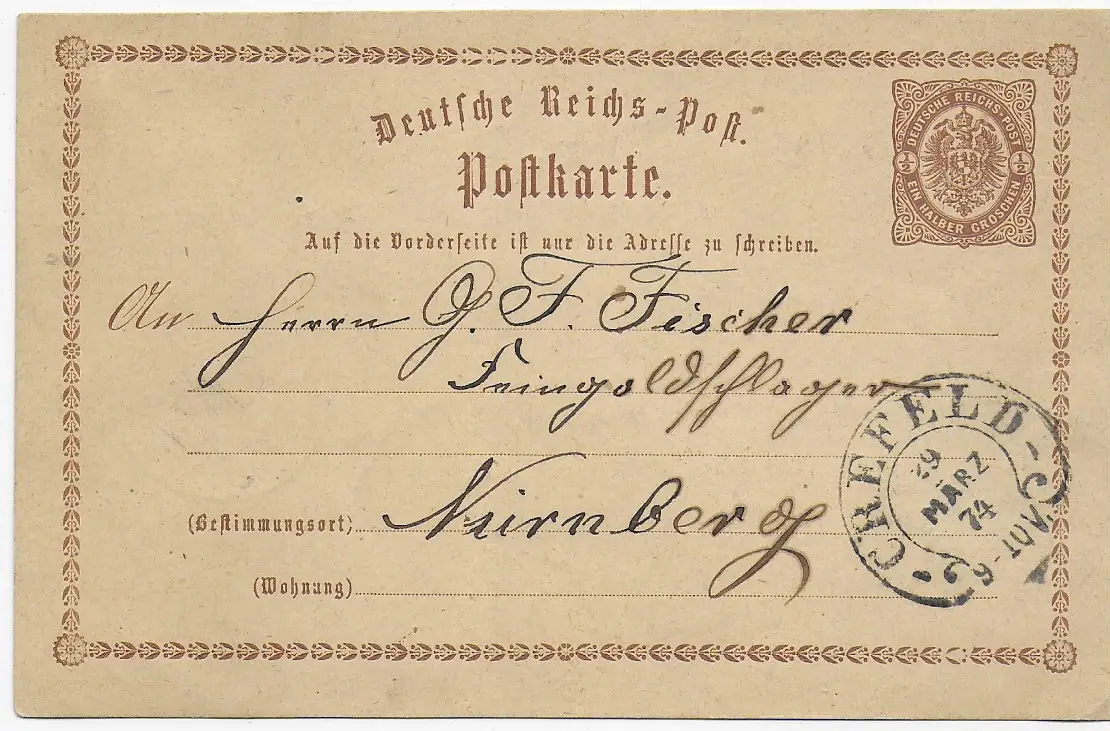 Deutsche Reichs-Post.
Postkarte.
DEUTSCHE REICHS-POST
½ ½
EIN HALBER GROSCHEN
Auf die Vorderseite ist nur die Adresse zu schreiben.
An Herrn G. F. Fischer
Feingoldschlager
(Bestimmungsort) Nürnberg
(Wohnung)
CREFELD-C
29
MÄRZ
74
9-10V.